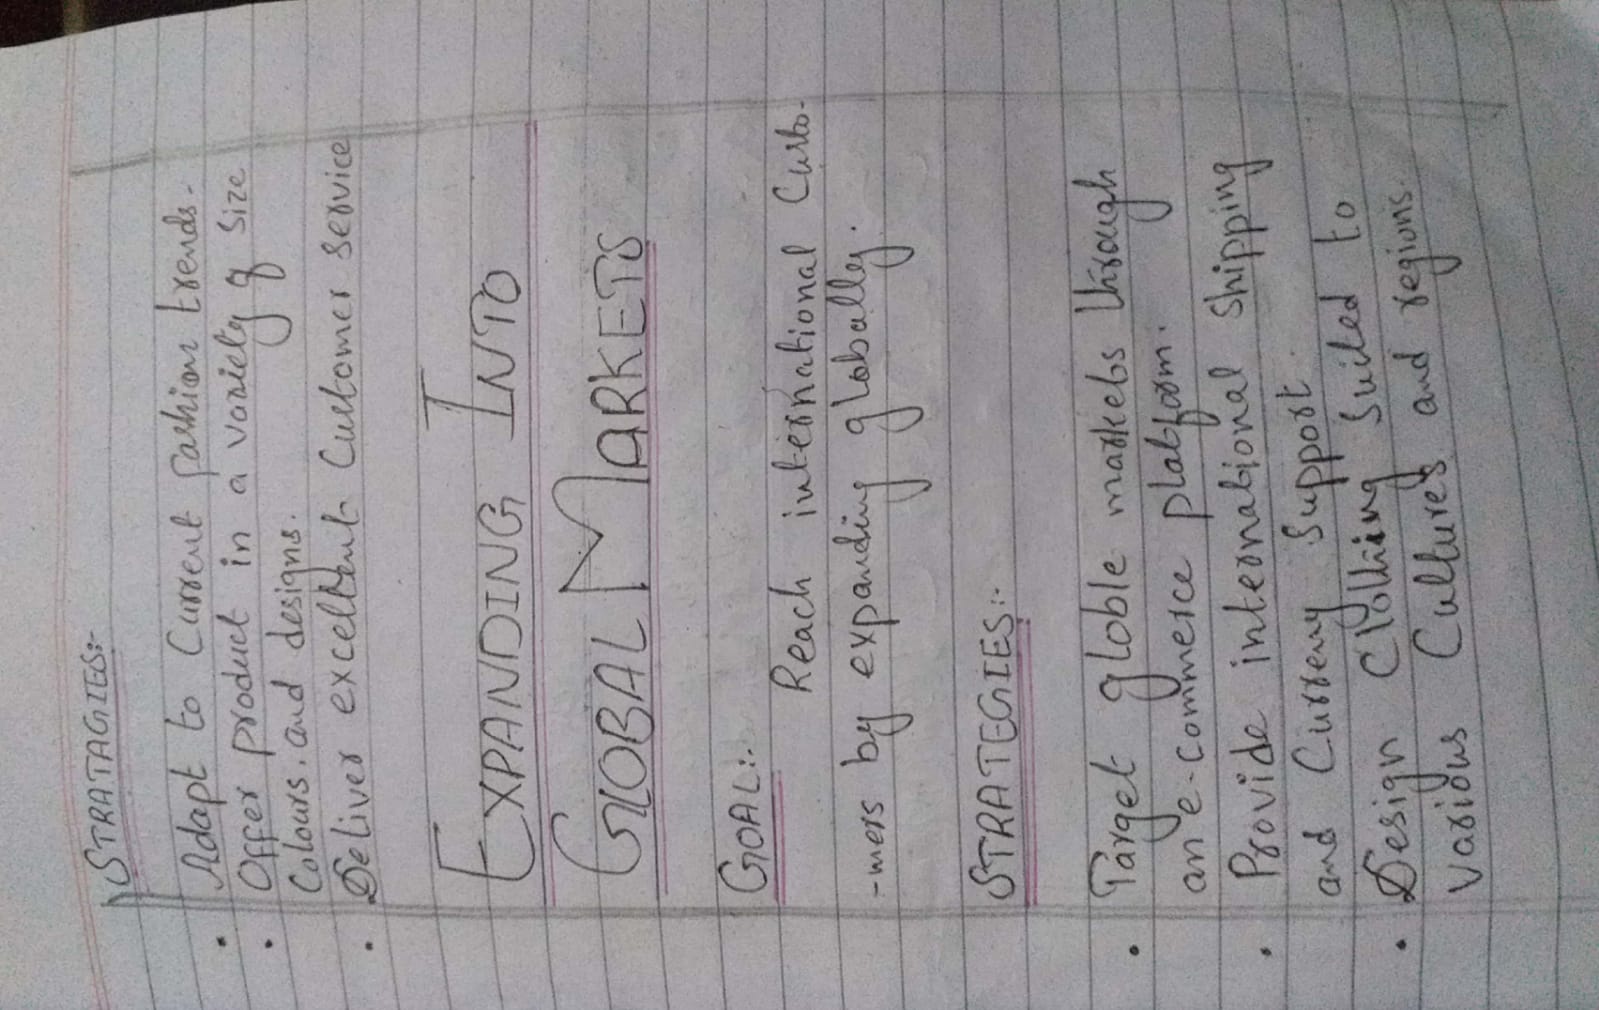 STRATAGIES:-
• Adapt to Current fashion trends.
• Offer product in a variety of size
Colours. and designs.
• Deliver excellent Customer service
EXPANDING INTO
GLOBAL MARKETS
GOAL:-
Reach international Custo-
-mers by expanding globally.
STRATEGIES:-
• Target globle markets through
an e-commerce platform.
• Provide international shipping
and Curreny Support.
• Design Clothing Suited to
various Cultures and regions.